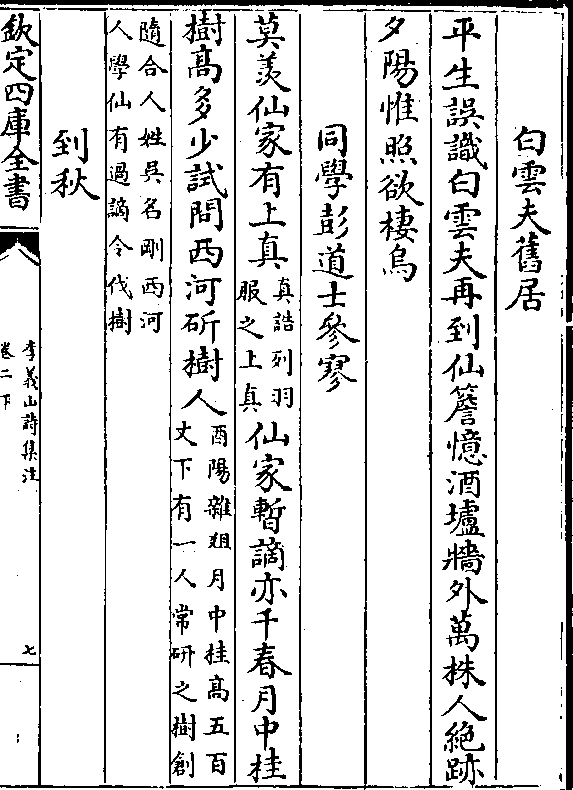 白雲夫舊居
平生誤識白雲夫再到仙簷憶酒壚牆外萬株人絶跡
夕陽惟照欲棲烏
同學彭道士參寥
莫羨仙家有上真真誥列羽服之上真仙家暫謫亦千春月中桂
樹高多少試問西河斫樹人酉陽雜俎月中桂高五百丈下有一人常斫之樹創
隨合人姓吳名剛西河人學仙有過謫令伐樹
到秋
欽定四庫全書
李義山詩集注
卷二下
七